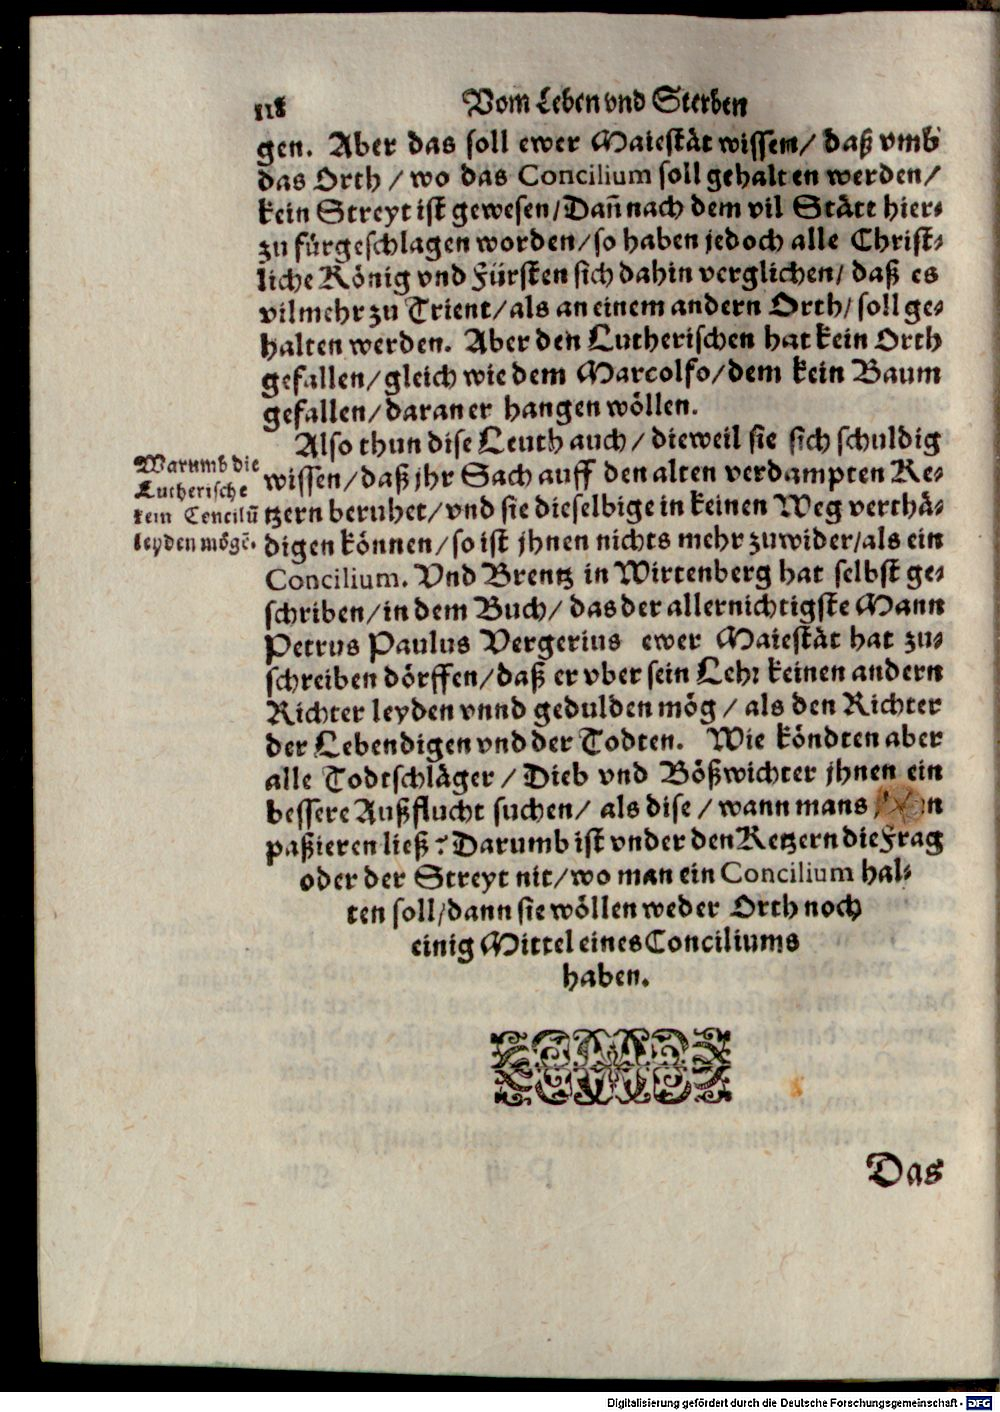 118
Vom Leben vnd Sterben
gen. Aber das soll ewer Maiestät wissen/ daß vmb
das Orth / wo das Concilium soll gehalten werden/
kein Streyt ist gewesen/Dañ nach dem vil Stätt hier-
zu fürgeschlagen worden/so haben jedoch alle Christ-
liche König vnd Fürsten sich dahin verglichen/ daß es
vilmehr zu Trient/als an einem andern Orth/ soll ge-
halten werden. Aber den Lutherischen hat kein Orth
gefallen/gleich wie dem Marcolfo/dem kein Baum
gefallen/daran er hangen wöllen.
Also thun dise Leuth auch/ dieweil sie sich schuldig
wissen/daß jhr Sach auff den alten verdampten Ke-
tzern beruhet/vnd sie dieselbige in keinen Weg verthä-
digen können/so ist jhnen nichts mehr zuwider/als ein
Concilium. Vnd Brentz in Wirtenberg hat selbst ge-
schriben/in dem Buch/ das der allernichtigste Mann
Petrus Paulus Vergerius ewer Maiestät hat zu-
schreiben dörffen/daß er vber sein Lehr keinen andern
Richter leyden vnnd gedulden mög / als den Richter
der Lebendigen vnd der Todten. Wie köndten aber
alle Todtschläger / Dieb vnd Bößwichter jhnen ein
bessere Außflucht suchen/ als dise / wann mans
paßieren ließ? Darumb ist vnder den Ketzern die Frag
oder der Streyt nit/wo man ein Concilium hal-
ten soll/dann sie wöllen weder Orth noch
einig Mittel eines Conciliums
haben.
Warumb die
Lutherische
kein Conciliũ
leyden mögẽ.
Das
Digitalisierung gefördert durch die Deutsche Forschungsgemeinschaft - DFG